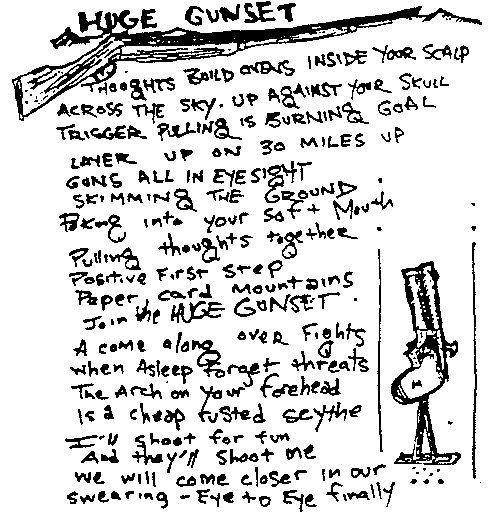 HUGE GUNSET
THOUGHTS BUILD OVENS INSIDE YOUR SCALP
ACROSS THE SKY. UP AGAINST YOUR SKULL
TRIGGER PULLING IS BURNING GOAL
LAYER UP ON 30 MILES UP
GUNS ALL IN EYESIGHT
SKIMMING THE GROUND
Poking into your Soft Mouth
Pulling thoughts together
Positive First Step
Paper card mountains
Join the HUGE GUNSET.
A come along over Fights
when Asleep Forget threats
The Arch on your forehead
Is a cheap rusted scythe
I'll shoot for fun
And they'll shoot me
we will come closer in our
swearing - Eye to Eye finally
M